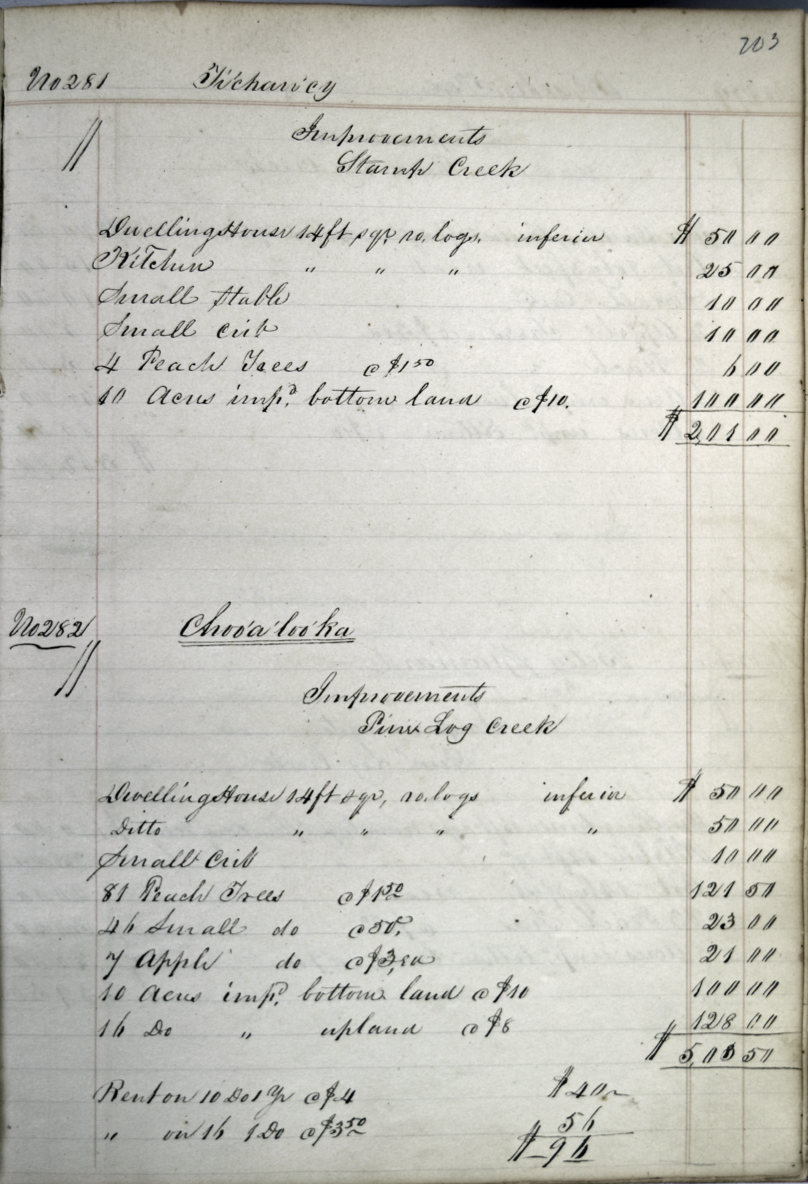 203
No 281 Ti'chari'cy
Improvements
Stamp Creek
Dwelling House 14 ft sqr ro. logs. inferior $ 50 00
Kitchen " " " 25 00
Small Stable 10 00
Small Crib 10 00
4 Peach Trees @ $1 50 6 00
10 Acres imp.d bottom land @ $10. 100 00
$ 201 00
No 282 Choo'a'loo'ka
Improvements
Pine Log Creek
Dwelling House 14 ft sqr, ro. logs inferior $ 50 00
Ditto " " " " 50 00
Small Crib 10 00
81 Peach Trees @ $1 50 121 50
46 Small do @ 50c. 23 00
7 Apple do @ $3, ea 21 00
10 Acres imp.d bottom land @ $10 100 00
16 Do " upland @ $8 128 00
$ 503 50
Rent on 10 Do 1 Yr @ $4 $ 40 ~
" on 16 1 Do @ $3 50 56
$ 96